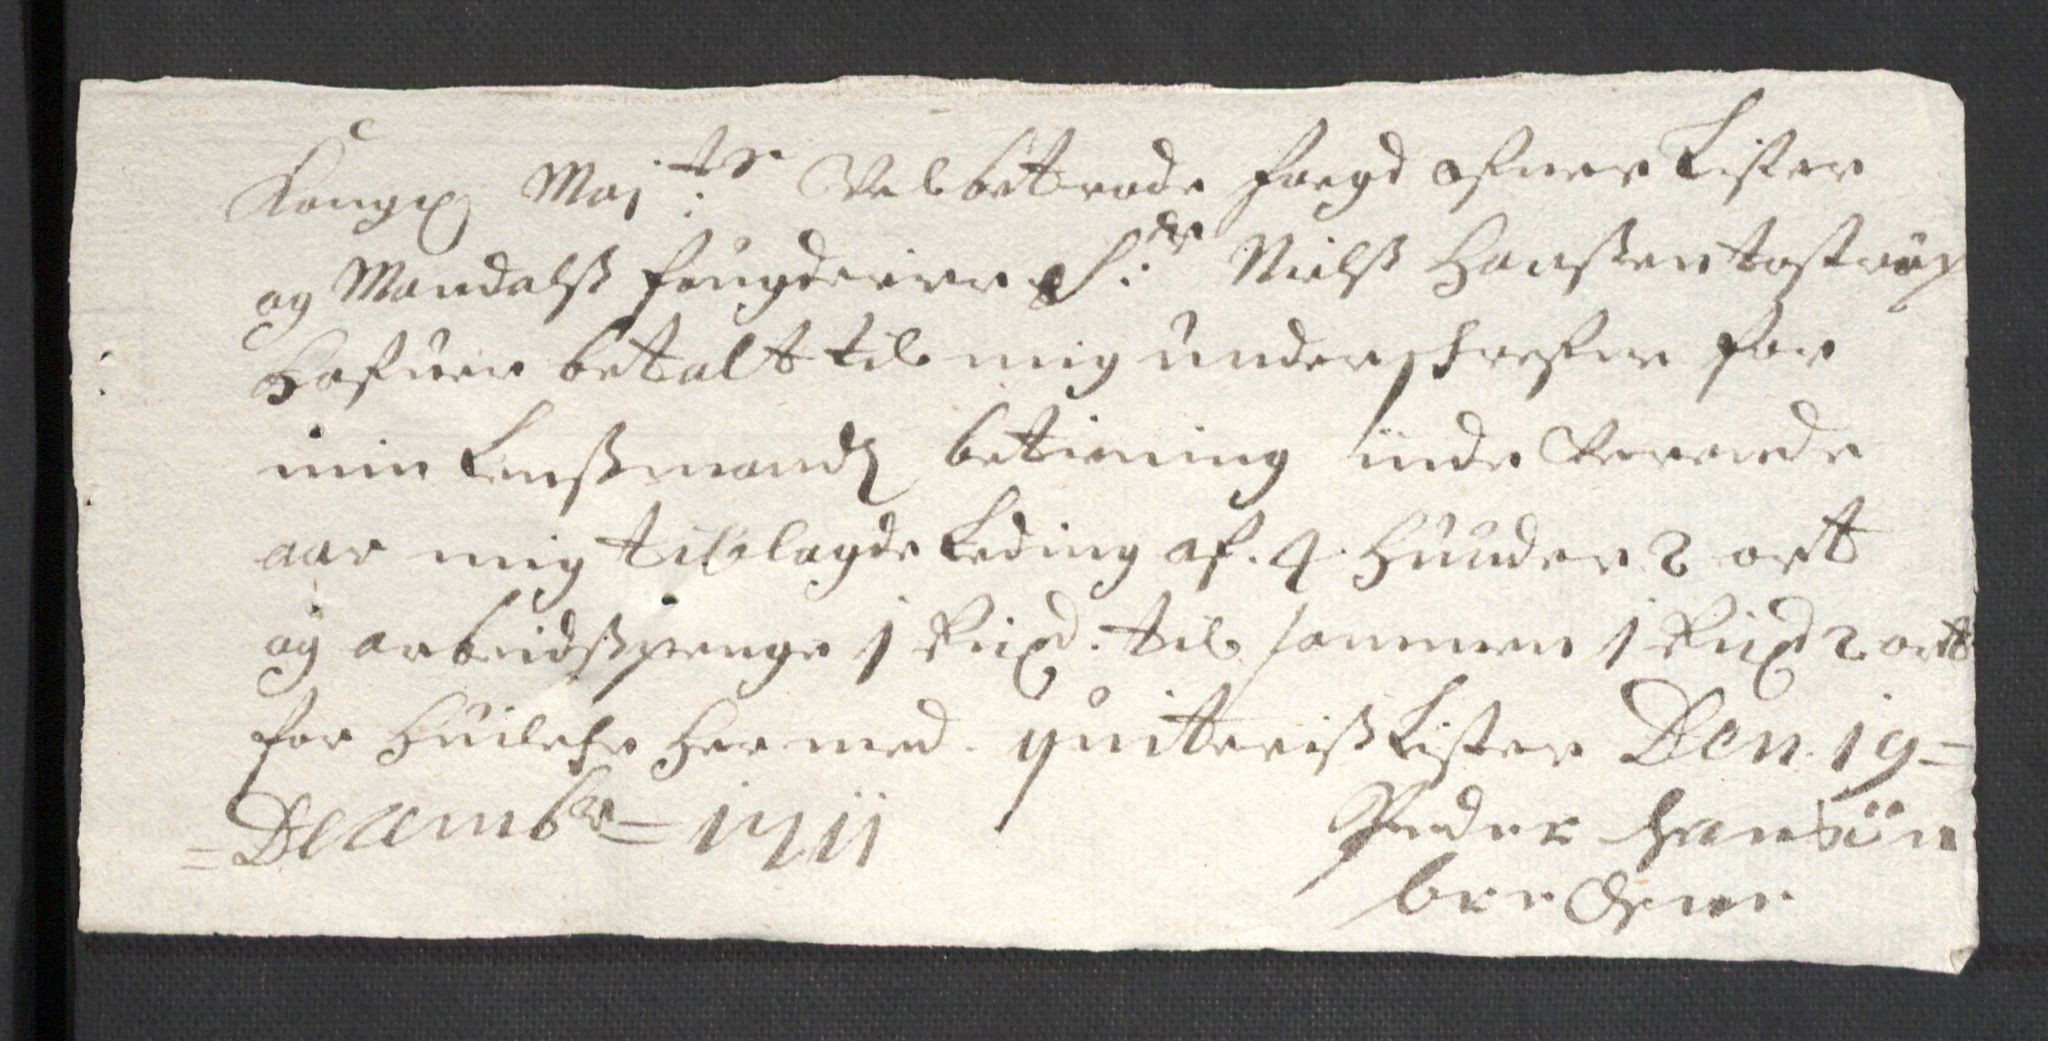 Kongl Maj:ts Velbetrode foegd ofuer Lister
og Mandalß fougderier Sr: Nielß Hanßen tostrüp
Hafuer betalt til mig underskrefne for
min Lenßmandß betiening inde verende
aar mig tillagde Leding af 4 Huuder 2 ort
og arbeidßpenge 1 Rixd. til sammen 1 Rixd 2 ort
for Huilche Hermed quitteriß Lister Den 19 =
= Decembr = 1711
Peder Hansün